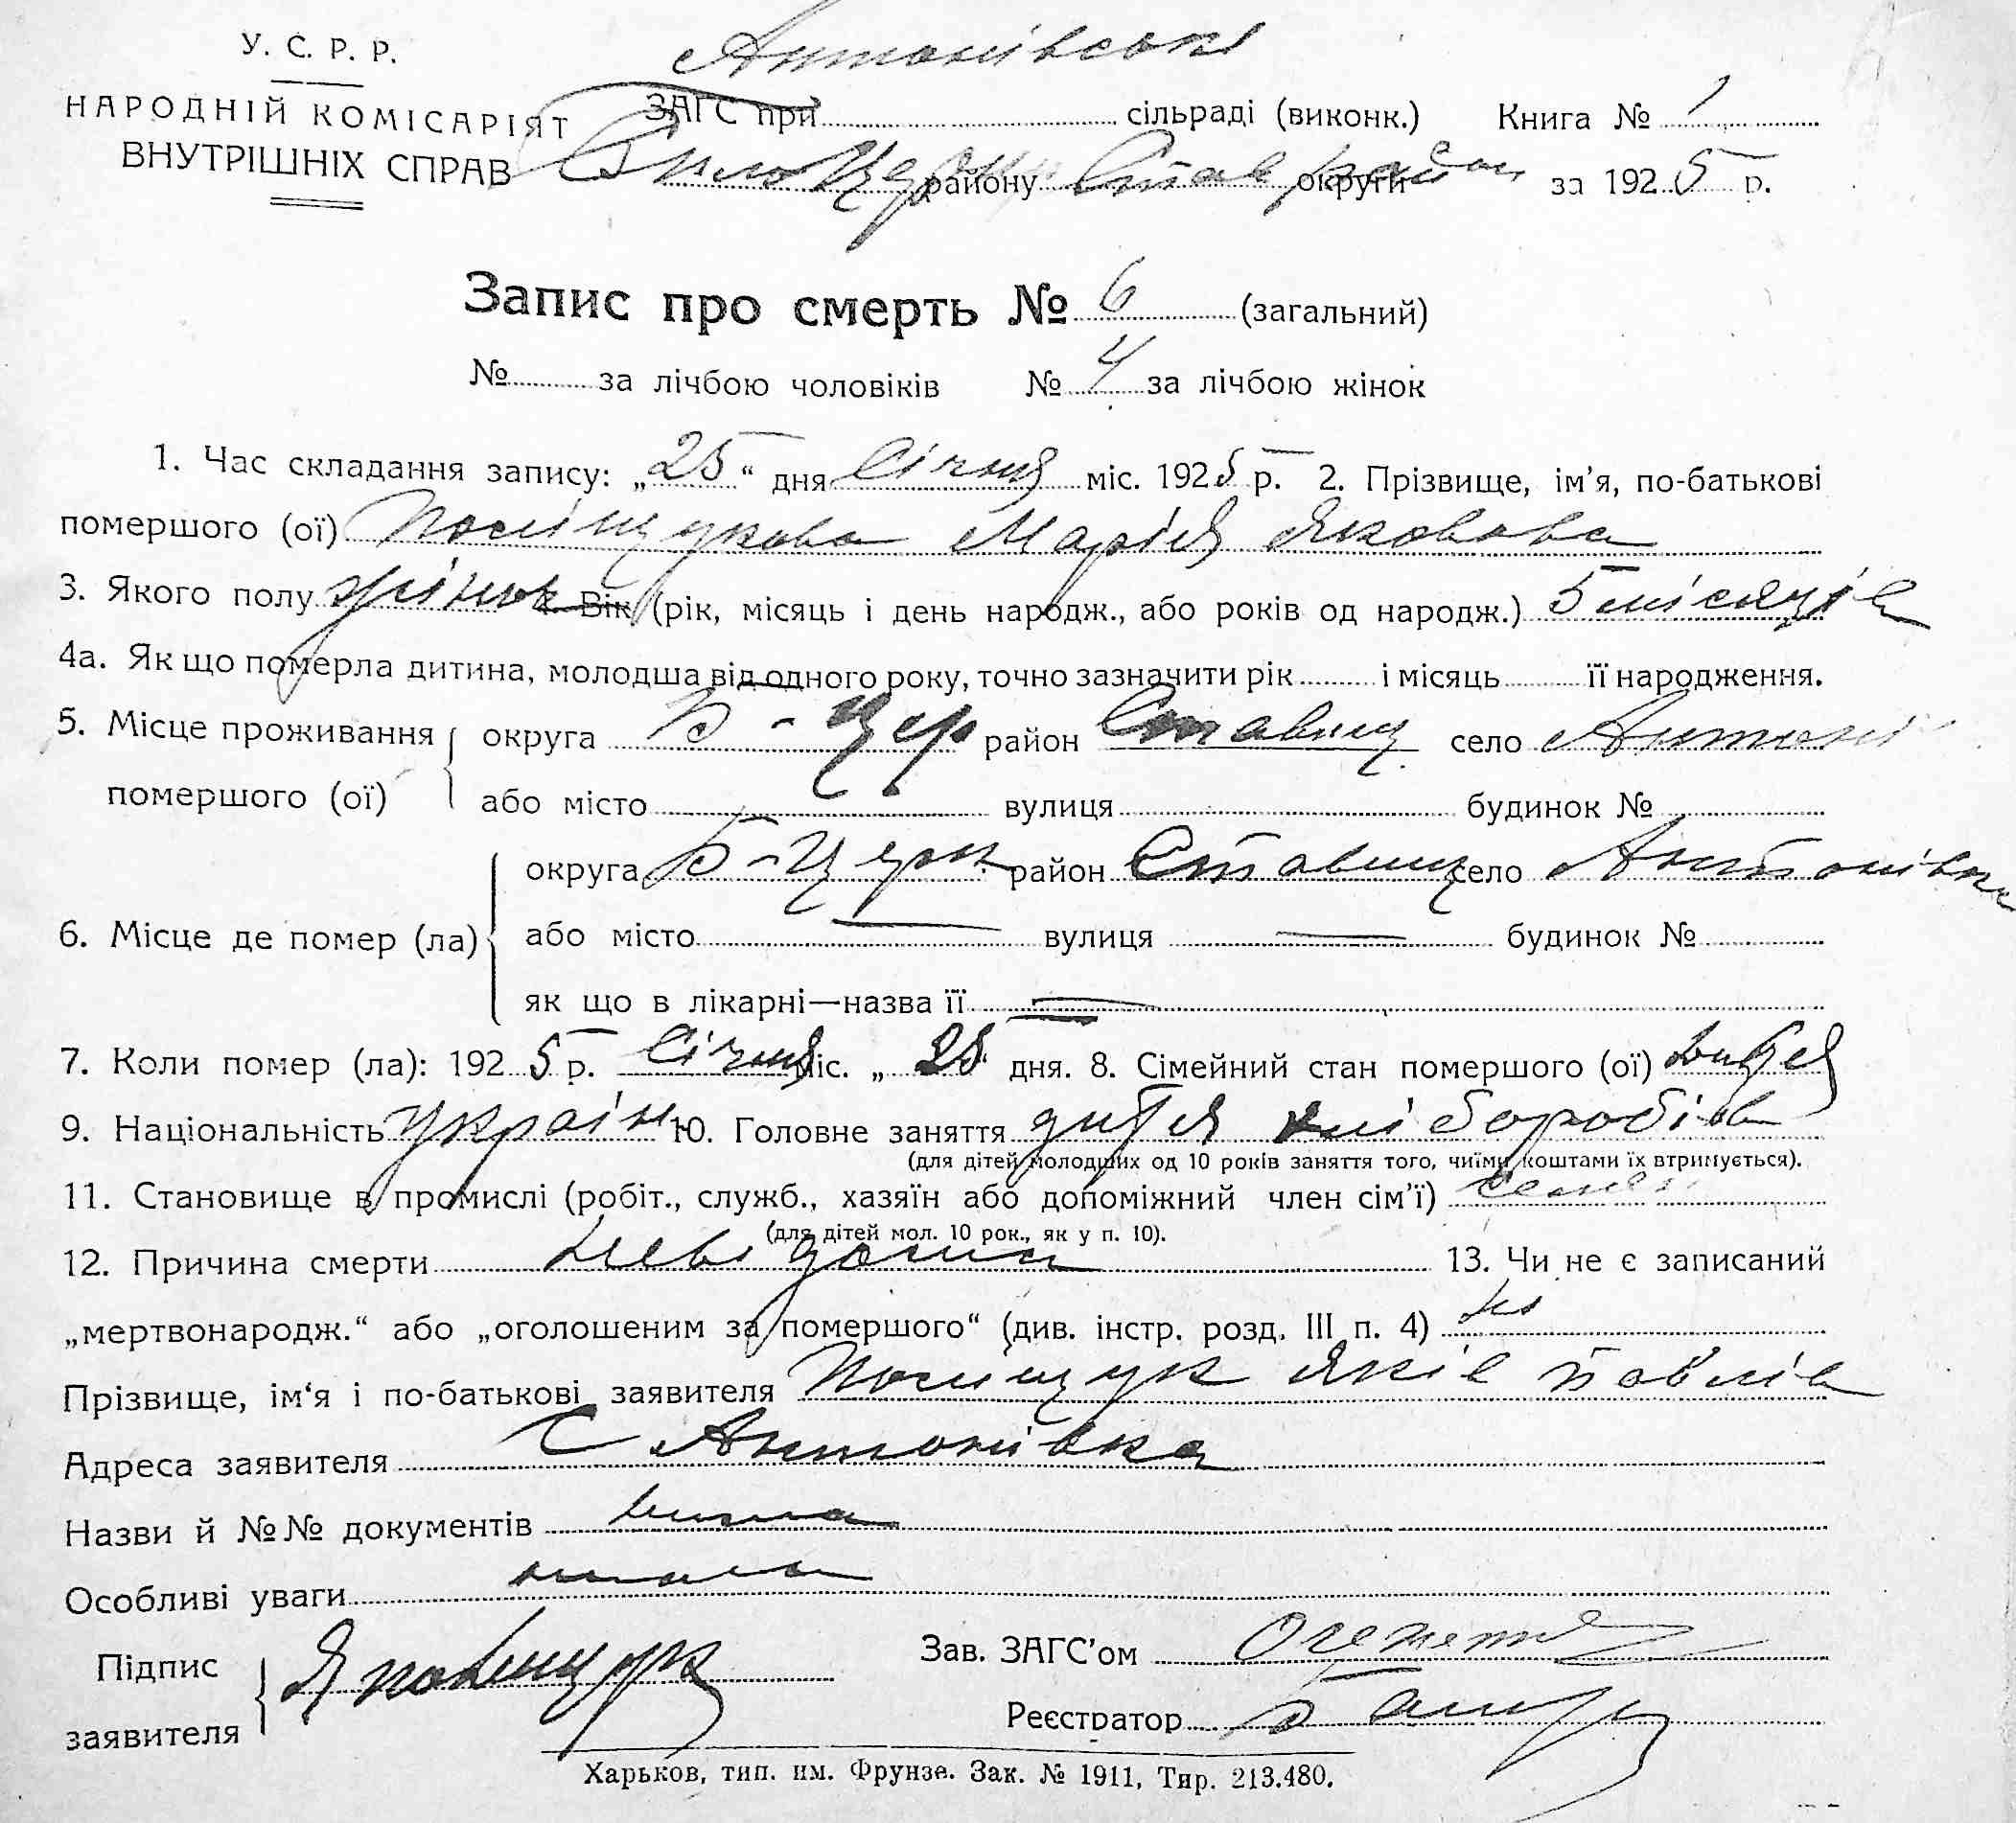 У. С. Р. Р.
НАРОДНІЙ КОМІСАРІЯТ
ВНУТРІШНІХ СПРАВ
Антонівські
ЗАГС при сільраді (виконк.) Книга № 1
Біло Церк району Став район округи за 1925 р.
Запис про смерть № 6 (загальний)
№ за лічбою чоловіків № 4 за лічбою жінок
1. Час складання запису: „25“ дня Січня міс. 1925 р. 2. Прізвище, ім’я, по-батькові
помершого (ої) Поліщукова Марія Яковова
3. Якого полу жіноч 4. Вік (рік, місяць і день народж., або років од народж.) 5 місяців
4а. Як що померла дитина, молодша від одного року, точно зазначити рік і місяць її народження.
5. Місце проживання помершого (ої) округа Б-Цер район Ставищ село Антоні
або місто вулиця будинок №
6. Місце де помер (ла) округа Б-Церк район Ставищ село Антонівка
або місто — вулиця — будинок №
як що в лікарні—назва її —
7. Коли помер (ла): 1925 р. Січня міс. „25 дня. 8. Сімейний стан помершого (ої) дитя
9. Національність україн 10. Головне заняття дитя хліборобів
(для дітей молодших од 10 років заняття того, чиїми коштами їх втримується).
11. Становище в промислі (робіт., служб., хазяїн або допоміжний член сім’ї)
(для дітей мол. 10 рок., як у п. 10).
12. Причина смерти невідома 13. Чи не є записаний
„мертвонародж.“ або „оголошеним за помершого“ (див. інстр. розд. III п. 4) ні
Прізвище, ім‘я і по-батькові заявителя Поліщук Яків Павлів
Адреса заявителя С Антонівка
Назви й №№ документів нима
Особливі уваги нима
Підпис заявителя Я Поліщук
Зав. ЗАГС’ом
Реєстратор
Харьков, тип. им. Фрунзе. Зак. № 1911, Тир. 213.480.